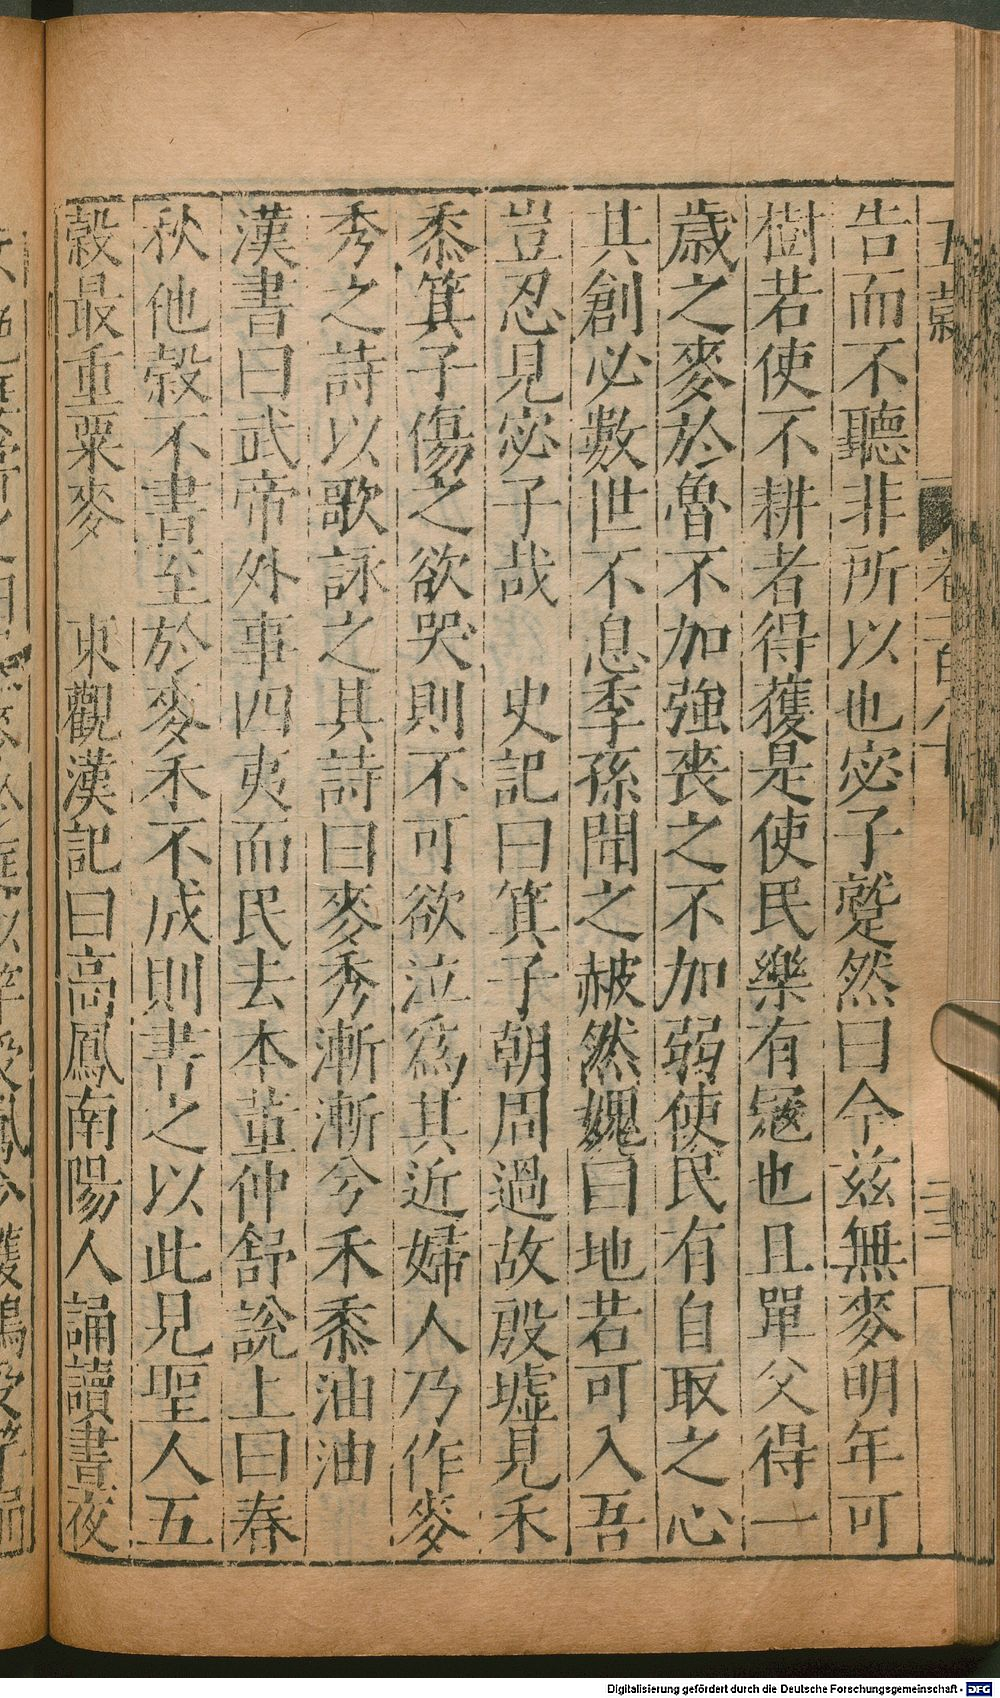 告而不聽非所以也宓子蹵然曰今茲無麥明年可
樹若使不耕者得獲是使民樂有寇也且單父得一
歲之麥於魯不加強喪之不加弱使民有自取之心
其創必數世不息季孫聞之赧然媿曰地若可入吾
豈忍見宓子哉　史記曰箕子朝周過故殷墟見禾
黍箕子傷之欲哭則不可欲泣為其近婦人乃作麥
秀之詩以歌詠之其詩曰麥秀漸漸兮禾黍油油
漢書曰武帝外事四夷而民去本董仲舒說上曰春
秋他穀不書至於麥禾不成則書之以此見聖人五
穀最重粟麥　東觀漢記曰高鳳南陽人誦讀晝夜
Digitalisierung gefördert durch die Deutsche Forschungsgemeinschaft - DFG